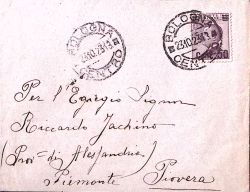 BOLOGNA
CENTRO
BOLOGNA
23.10.23.19
CENTRO
50
Per l'Egregio Signor
Riccardo Jachino
(Prov. di Alessandria)
Piemonte Piovera